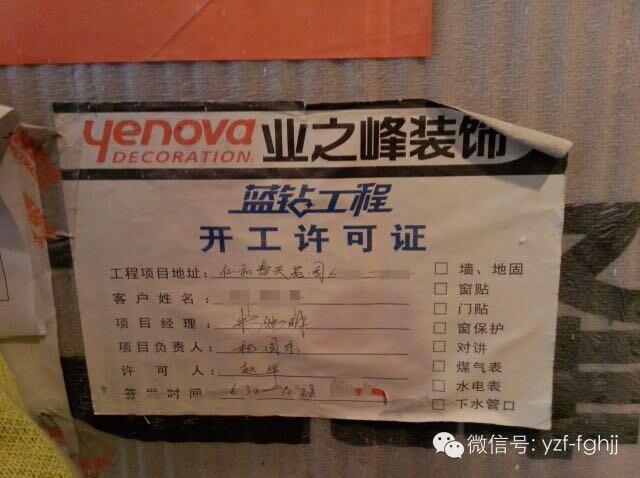 yenova 业之峰装饰
DECORATION
蓝钻工程
开工许可证
工程项目地址: 仁和
客户姓名:
项目经理:
项目负责人:
许可人:
签发时间 6.30 — 10.28
□ 墙、地固
□ 窗贴
□ 门贴
□ 窗保护
□ 对讲
□ 煤气表
□ 水电表
□ 下水管口
微信号: yzf-fghjj